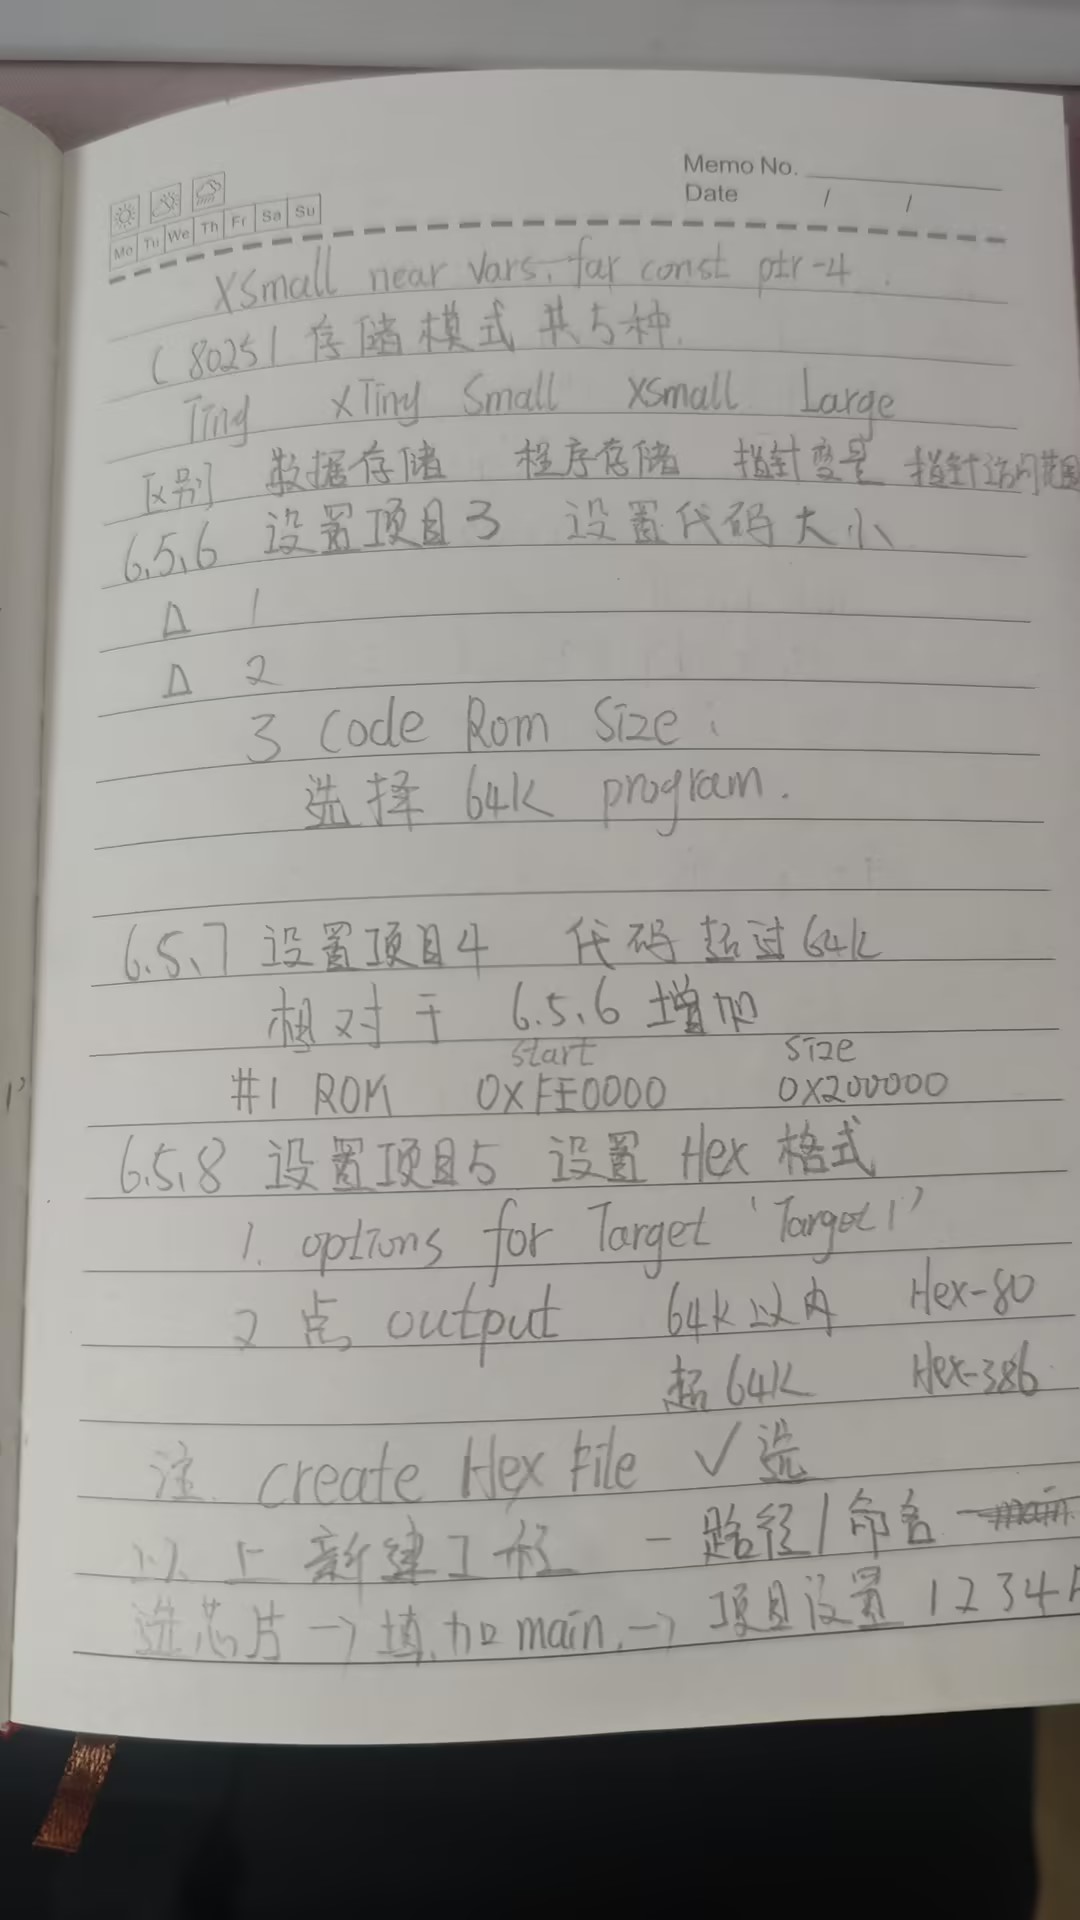 Memo No.
Date / /
Mo Tu We Th Fr Sa Su
XSmall near Vars, far const ptr-4
( 80251 存储模式 共5种.
Tiny XTiny Small XSmall Large
区别 数据存储 程序存储 指针变量 指针访问范围
6.5.6 设置项目3 设置代码大小
Δ 1
Δ 2
3 Code Rom Size:
选择 64K program.
6.5.7 设置项目4 代码超过64K
相对于 6.5.6 增加
start size
#1 ROM 0XFE0000 0X200000
6.5.8 设置项目5 设置 Hex 格式
1. options for Target 'Target1'
2 点 output 64K以内 Hex-80
超64K Hex-386
注. Create Hex File ✓选
以上新建工程 - 路径/命名
选芯片 → 填加main. → 项目设置 1234